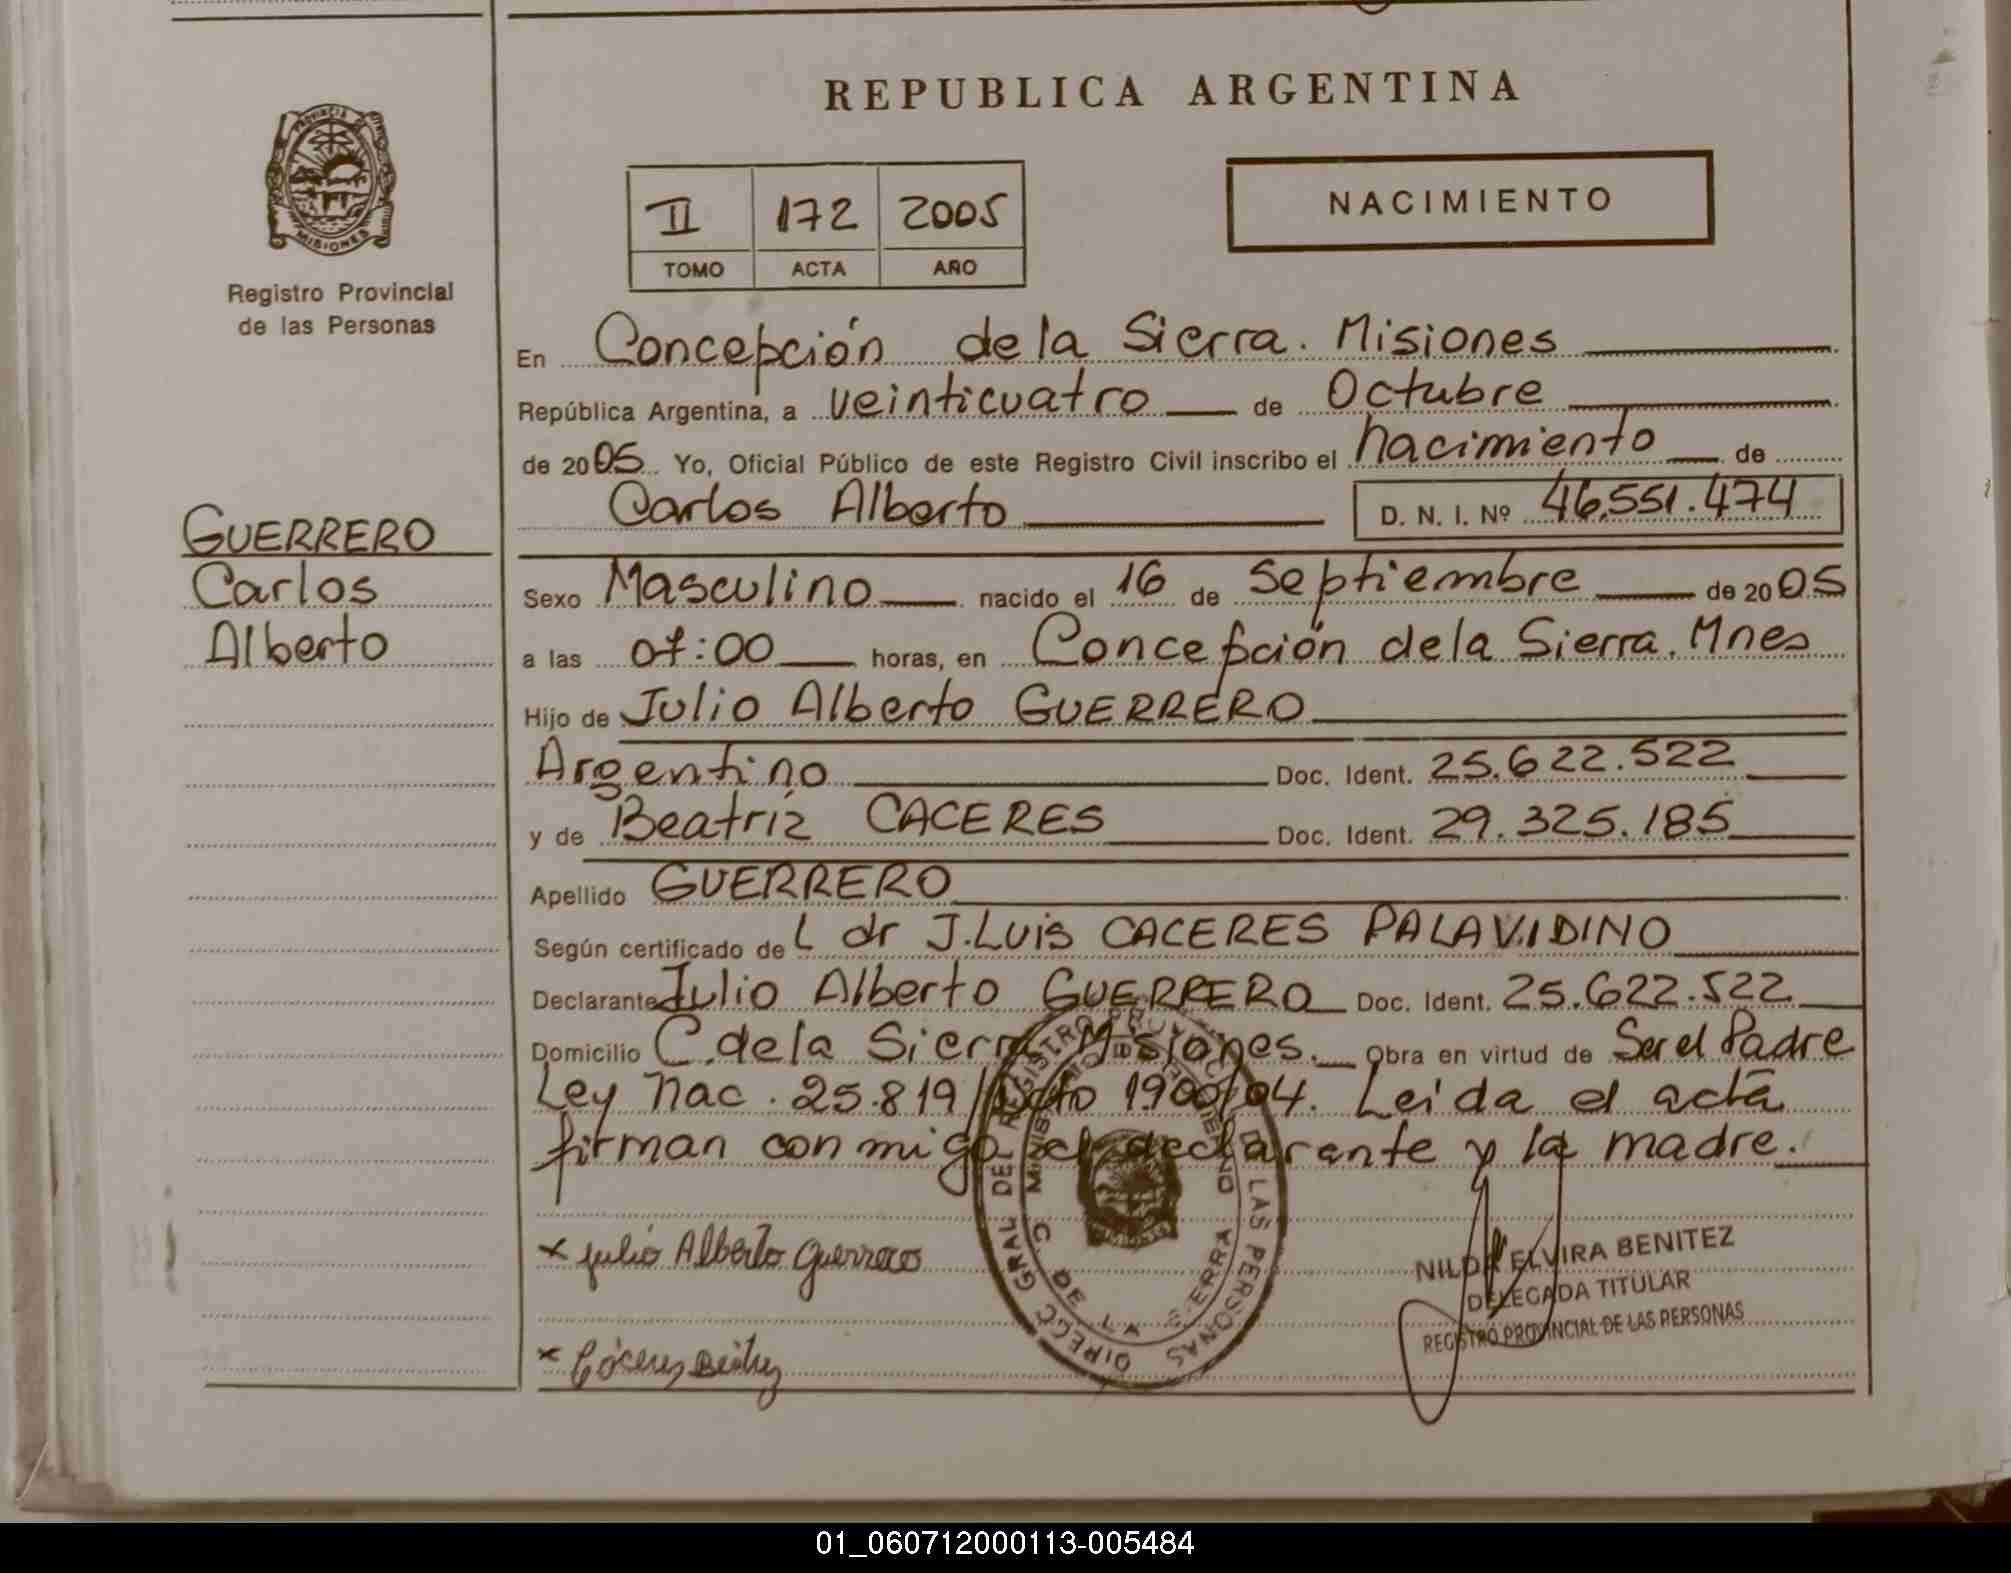 REPUBLICA ARGENTINA
PROVINCIA DE MISIONES
Registro Provincial
de las Personas
II 172 2005
TOMO ACTA AÑO
NACIMIENTO
En Concepción de la Sierra. Misiones
República Argentina, a veinticuatro de Octubre
de 2005 Yo, Oficial Público de este Registro Civil inscribo el nacimiento de
Carlos Alberto D. N. I. Nº 46.551.474
GUERRERO
Carlos
Alberto
Sexo Masculino nacido el 16 de Septiembre de 2005
a las 07:00 horas, en Concepción de la Sierra. Mnes
Hijo de Julio Alberto GUERRERO
Argentino Doc. Ident. 25.622.522
y de Beatriz CACERES Doc. Ident. 29.325.185
Apellido GUERRERO
Según certificado de L dr J. Luis CACERES PALAVIDINO
Declarante Julio Alberto GUERRERO Doc. Ident. 25.622.522
Domicilio C. de la Sierra Misiones. Obra en virtud de Ser el Padre
Ley Nac. 25.819/Dcto 1900/04. Leida el acta
firman conmigo el declarante y la madre.
x Julio Alberto Guerrero
x Cáceres Beatriz
DIRECC GRAL DEL REGISTRO DE LAS PERSONAS
C. DE LA SIERRA
MISIONES
NILDA ELVIRA BENITEZ
DELEGADA TITULAR
REGISTRO PROVINCIAL DE LAS PERSONAS
01_060712000113-005484